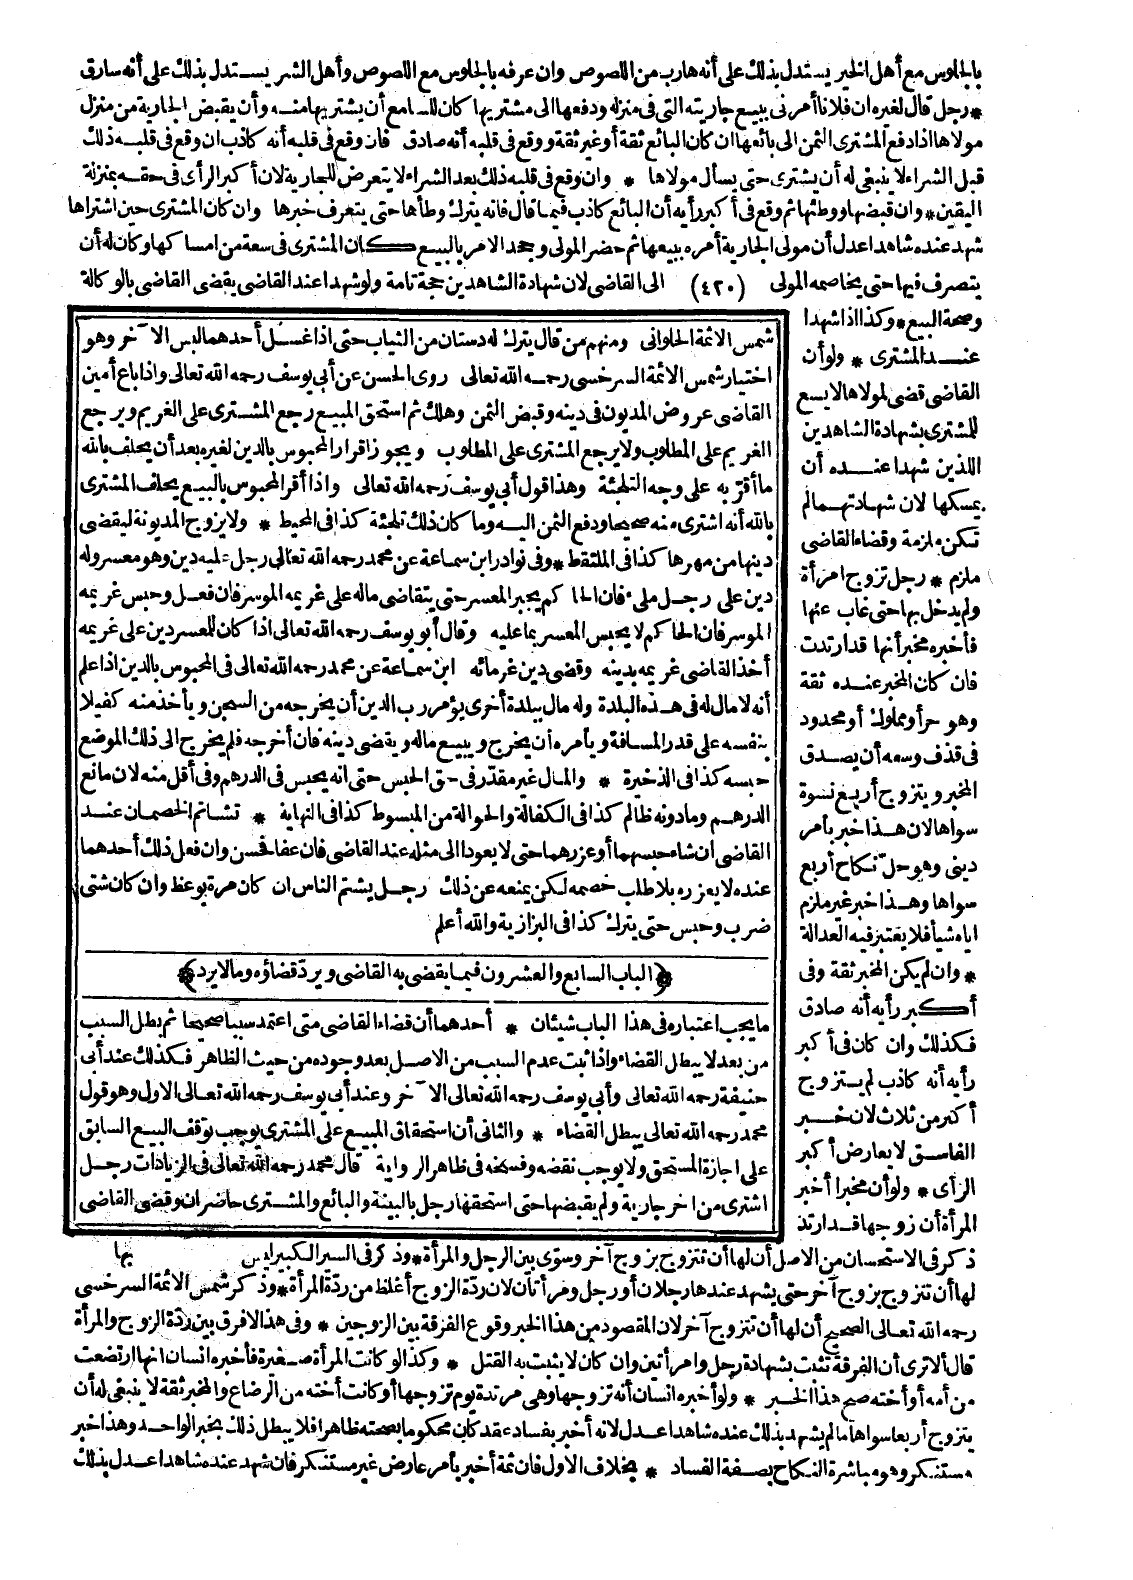 بالجلوس مع أهل الخير يستدل بذلك على أنه هارب من اللصوص وان عرفه بالجلوس مع اللصوص وأهل الشر يستدل بذلك على أنه سارق
* رجل قال لغيره ان فلانا أمرنى ببيع جاريته التى فى منزله ودفعها الى مشتريها كان للسامع أن يشتريها منه وأن يقبض الجارية من منزل
مولاها اذا دفع المشترى الثمن الى بائعها ان كان البائع ثقة أو غير ثقة ووقع فى قلبه أنه صادق فان وقع فى قلبه أنه كاذب ان وقع فى قلبه ذلك
قبل الشراء لا ينبغى له أن يشترى حتى يسأل مولاها * وان وقع فى قلبه ذلك بعد الشراء لا يتعرض للجارية لان أكبر الرأى فى حقه بمنزلة
اليقين * وان قبضها ووطئها ثم وقع فى أكبر رأيه أن البائع كاذب فيما قال فانه يترك وطأها حتى يتعرف خبرها وان كان المشترى حين اشتراها
شهد عنده شاهدا عدل أن مولى الجارية أمره ببيعها ثم حضر المولى وجحد الامر بالبيع كان المشترى فى سعة من امساكها وكان له أن
يتصرف فيها حتى يخاصمه المولى (٤٢٠) الى القاضى لان شهادة الشاهدين حجة تامة ولو شهدا عند القاضى يقضى القاضى بالوكالة
وصحة البيع * وكذا اذا شهدا
عند المشترى * ولو أن
القاضى قضى لمولاها لا يسع
للمشترى بشهادة الشاهدين
اللذين شهدا عنده أن
يمسكها لان شهادتهما لم
تكن ملزمة وقضاء القاضى
ملزم * رجل تزوج امرأة
ولم يدخل بها حتى غاب عنها
فأخبره مخبر أنها قد ارتدت
فان كان المخبر عنده ثقة
وهو حر أو مملوك أو محدود
فى قذف وسعه أن يصدق
المخبر ويتزوج أربع نسوة
سواها لان هذا خبر بأمر
دينى وهو حل نكاح أربع
سواها وهذا خبر غير ملزم
اياه شيأ فلا يعتبر فيه العدالة
* وان لم يكن المخبر ثقة وفى
أكبر رأيه أنه صادق
فكذلك وان كان فى أكبر
رأيه أنه كاذب لم يتزوج
أكثر من ثلاث لان خبر
الفاسق لا يعارض أكبر
الرأى * ولو أن مخبرا أخبر
المرأة أن زوجها قد ارتد
شمس الائمة الحلوانى ومنهم من قال يترك له دستان من الثياب حتى اذا غسل أحدهما لبس الآخر وهو
اختيار شمس الائمة السرخسى رحمه الله تعالى روى الحسن عن أبى يوسف رحمه الله تعالى واذا باع أمين
القاضى عروض المديون فى دينه وقبض الثمن وهلك ثم استحق المبيع رجع المشترى على الغريم ويرجع
الغريم على المطلوب ولا يرجع المشترى على المطلوب ويجوز اقرار المحبوس بالدين لغيره بعد أن يحلف بالله
ما أقر به على وجه التلجئة وهذا قول أبى يوسف رحمه الله تعالى واذا أقر المحبوس بالبيع يحلف المشترى
بالله أنه اشترى منه صحيحا ودفع الثمن اليه وما كان ذلك تلجئة كذا فى المحيط * ولا يزوج المديونة ليقضى
دينها من مهرها كذا فى الملتقط * وفى نوادر ابن سماعة عن محمد رحمه الله تعالى رجل عليه دين وهو معسر وله
دين على رجل ملىء فان الحاكم يجبر المعسر حتى يتقاضى ماله على غريمه الموسر فان فعل وحبس غريمه
الموسر فان الحاكم لا يحبس المعسر بما عليه وقال أبو يوسف رحمه الله تعالى اذا كان للمعسر دين على غريمه
أخذ القاضى غريمه بدينه وقضى دين غرمائه ابن سماعة عن محمد رحمه الله تعالى فى المحبوس بالدين اذا علم
أنه لا مال له فى هذه البلدة وله مال ببلدة أخرى يؤمر رب الدين أن يخرجه من السجن ويأخذ منه كفيلا
بنفسه على قدر المسافة ويأمره أن يخرج ويبيع ماله ويقضى دينه فان أخرجه فلم يخرج الى ذلك الموضع
حبسه كذا فى الذخيرة * والمال غير مقدر فى حق الحبس حتى انه يحبس فى الدرهم وفى أقل منه لان مانع
الدرهم وما دونه ظالم كذا فى الكفالة والحوالة من المبسوط كذا فى النهاية * تشاتم الخصمان عند
القاضى ان شاء حبسهما أو عزرهما حتى لا يعودا الى مثله عند القاضى فان عفا فحسن وان فعل ذلك أحدهما
عنده لا يعزره بلا طلب خصمه لكن يمنعه عن ذلك رجل يشتم الناس ان كان مرة يوعظ وان كان شتى
ضرب وحبس حتى يترك كذا فى البزازية والله أعلم
﴿الباب السابع والعشرون فيما يقضى به القاضى ويرد قضاؤه وما لا يرد﴾
ما يجب اعتباره فى هذا الباب شيئان * أحدهما أن قضاء القاضى متى اعتمد سببا صحيحا ثم بطل السبب
من بعد لا يبطل القضاء واذا ثبت عدم السبب من الاصل بعد وجوده من حيث الظاهر فكذلك عند أبى
حنيفة رحمه الله تعالى وأبى يوسف رحمه الله تعالى الآخر وعند أبى يوسف رحمه الله تعالى الاول وهو قول
محمد رحمه الله تعالى يبطل القضاء * والثانى أن استحقاق المبيع على المشترى يوجب توقف البيع السابق
على اجازة المستحق ولا يوجب نقضه وفسخه فى ظاهر الرواية قال محمد رحمه الله تعالى فى الزيادات رجل
اشترى من اخر جارية ولم يقبضها حتى استحقها رجل بالبينة والبائع والمشترى حاضران وقضى القاضى
بها
ذكر فى الاستحسان من الاصل أن لها أن تتزوج بزوج آخر وسوى بين الرجل والمرأة * وذكر فى السير الكبير ليس
لها أن تتزوج بزوج آخر حتى يشهد عندها رجلان أو رجل وامرأتان لان ردة الزوج أغلظ من ردة المرأة * وذكر شمس الائمة السرخسى
رحمه الله تعالى الصحيح أن لها أن تتزوج آخر لان المقصود من هذا الخبر وقوع الفرقة بين الزوجين * وفى هذا لا فرق بين ردة الزوج والمرأة
قال ألا ترى أن الفرقة تثبت بشهادة رجل وامرأتين وان كان لا يثبت به القتل * وكذا لو كانت المرأة صغيرة فأخبره انسان انها ارتضعت
من أمه أو أخته صح هذا الخبر * ولو أخبره انسان أنه تزوجها وهى مرتدة يوم تزوجها أو كانت أخته من الرضاع والمخبر ثقة لا ينبغى له أن
يتزوج أربعا سواها ما لم يشهد بذلك عنده شاهدا عدل لانه أخبر بفساد عقد كان محكوما بصحته ظاهرا فلا يبطل ذلك بخبر الواحد وهذا خبر
مستنكر وهو مباشرة النكاح بصفة الفساد * بخلاف الاول فان ثمة أخبر بأمر عارض غير مستنكر فان شهد عنده شاهدا عدل بذلك